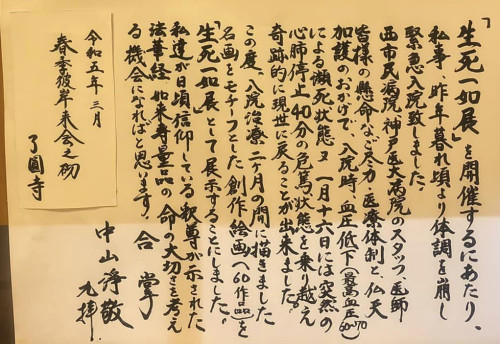 「生死一如展」を開催するにあたり、
私事、昨年暮れ頃より体調を崩し
緊急入院致しました。
西市民病院、神戸医大病院のスタッフ、医師
皆様の懸命なご尽力・医療体制と、仏天
加護のおかげで、入院時、血圧低下(最高血圧60~70)
による瀕死状態、又一月十六日には突然の
心肺停止40分の危篤状態を乗り越え
奇跡的に現世に戻ることが出来ました。
この度、入院治療二ヶ月の間に描きました
名画をモチーフとした創作絵画(60作品)を
「生死一如展」として展示することにしました。
私達が日頃信仰している釈尊が示された
法華経 如来寿量品の命の大切さを考え
る機会になればと思います。合掌
中山淨敬
九拝
令和五年三月
春季彼岸来会之砌
了圓寺